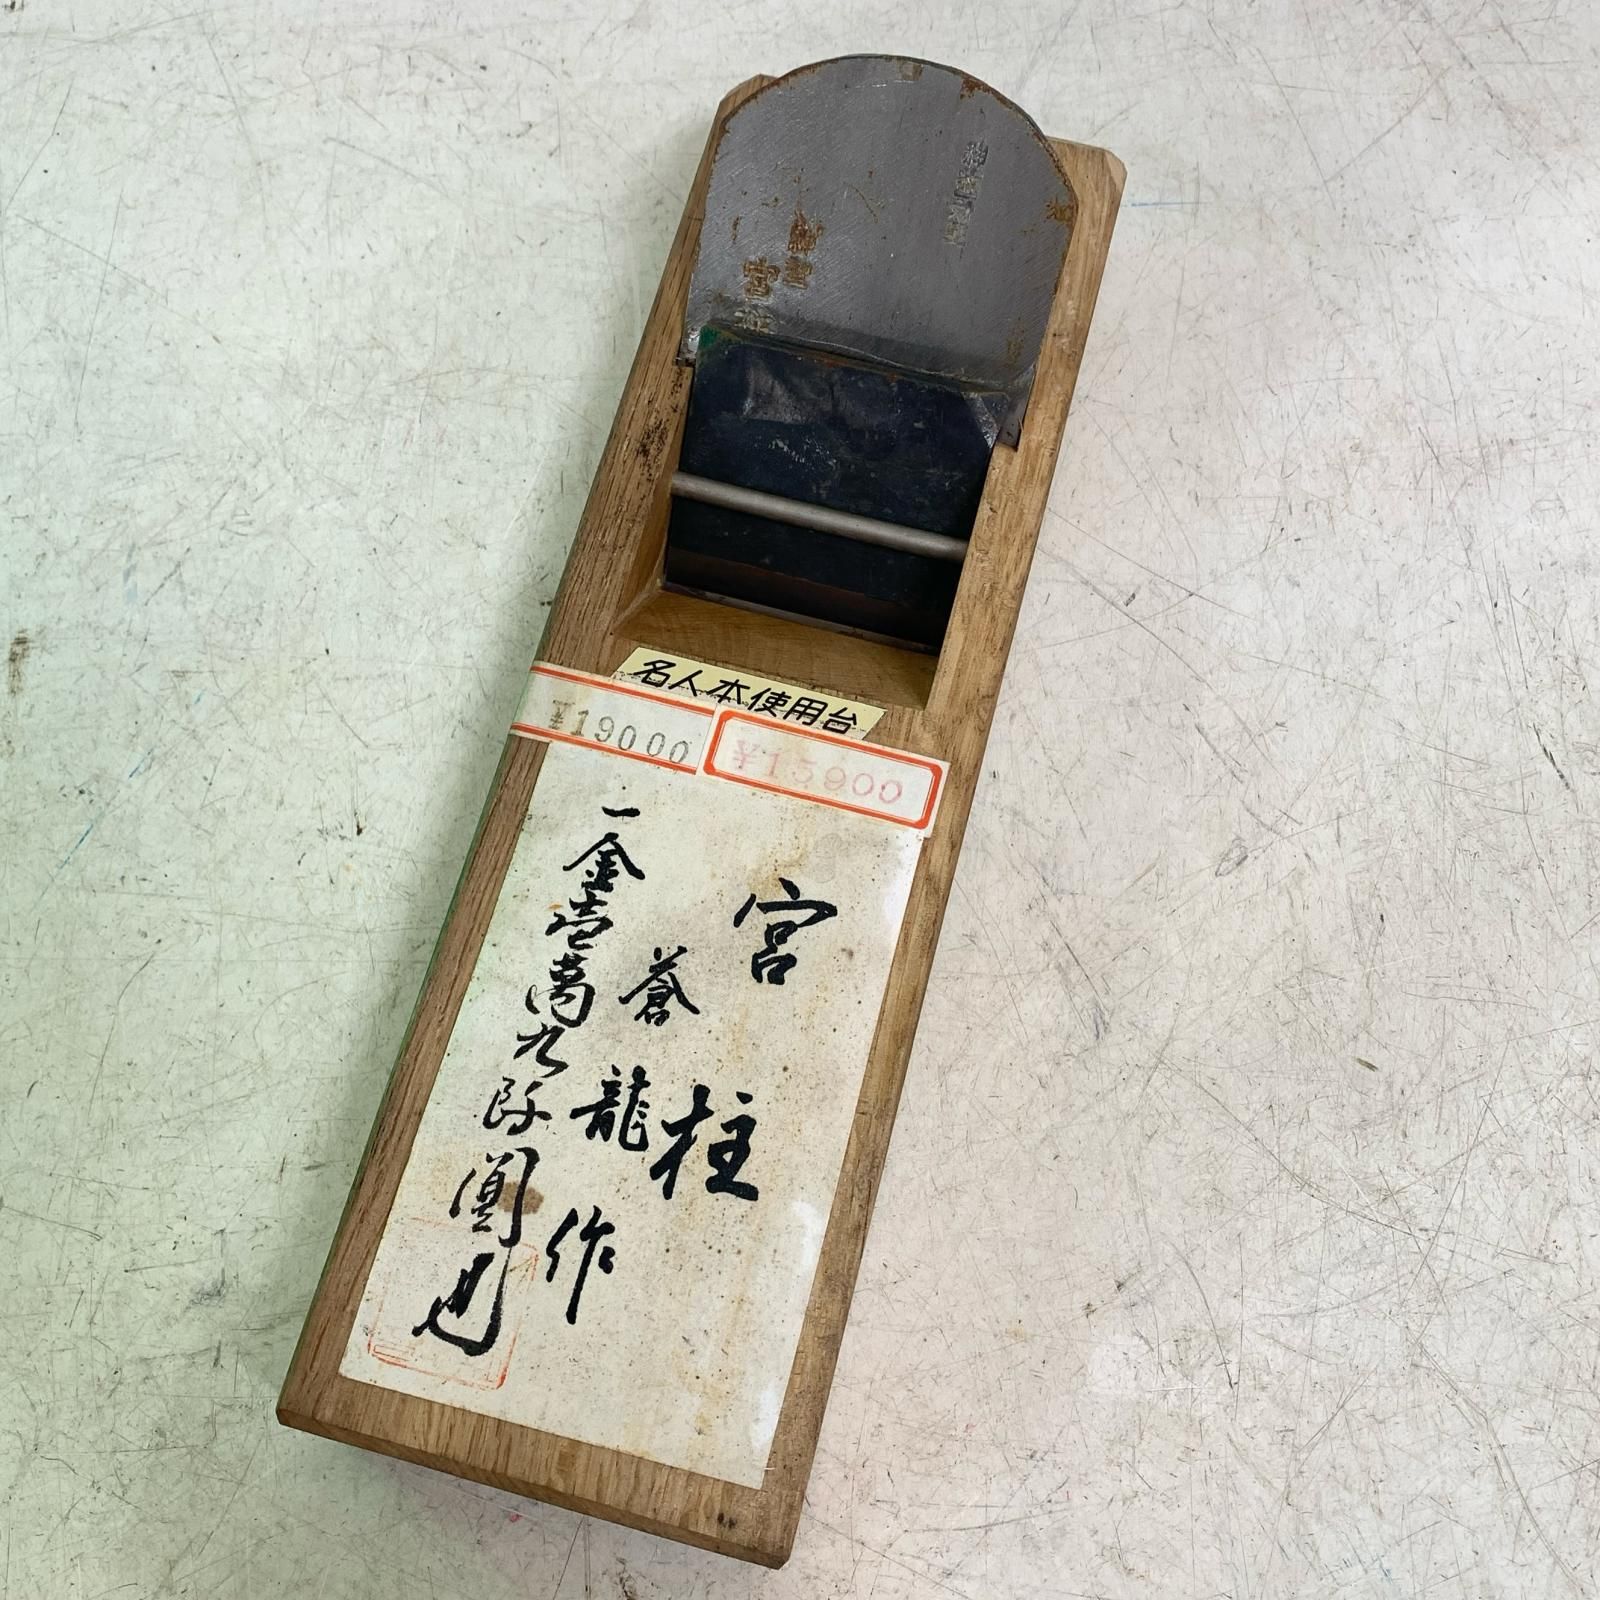 名人本使用台
¥19000
¥15900
宮柱
蒼龍作
一金壱萬九阡圓也
宮